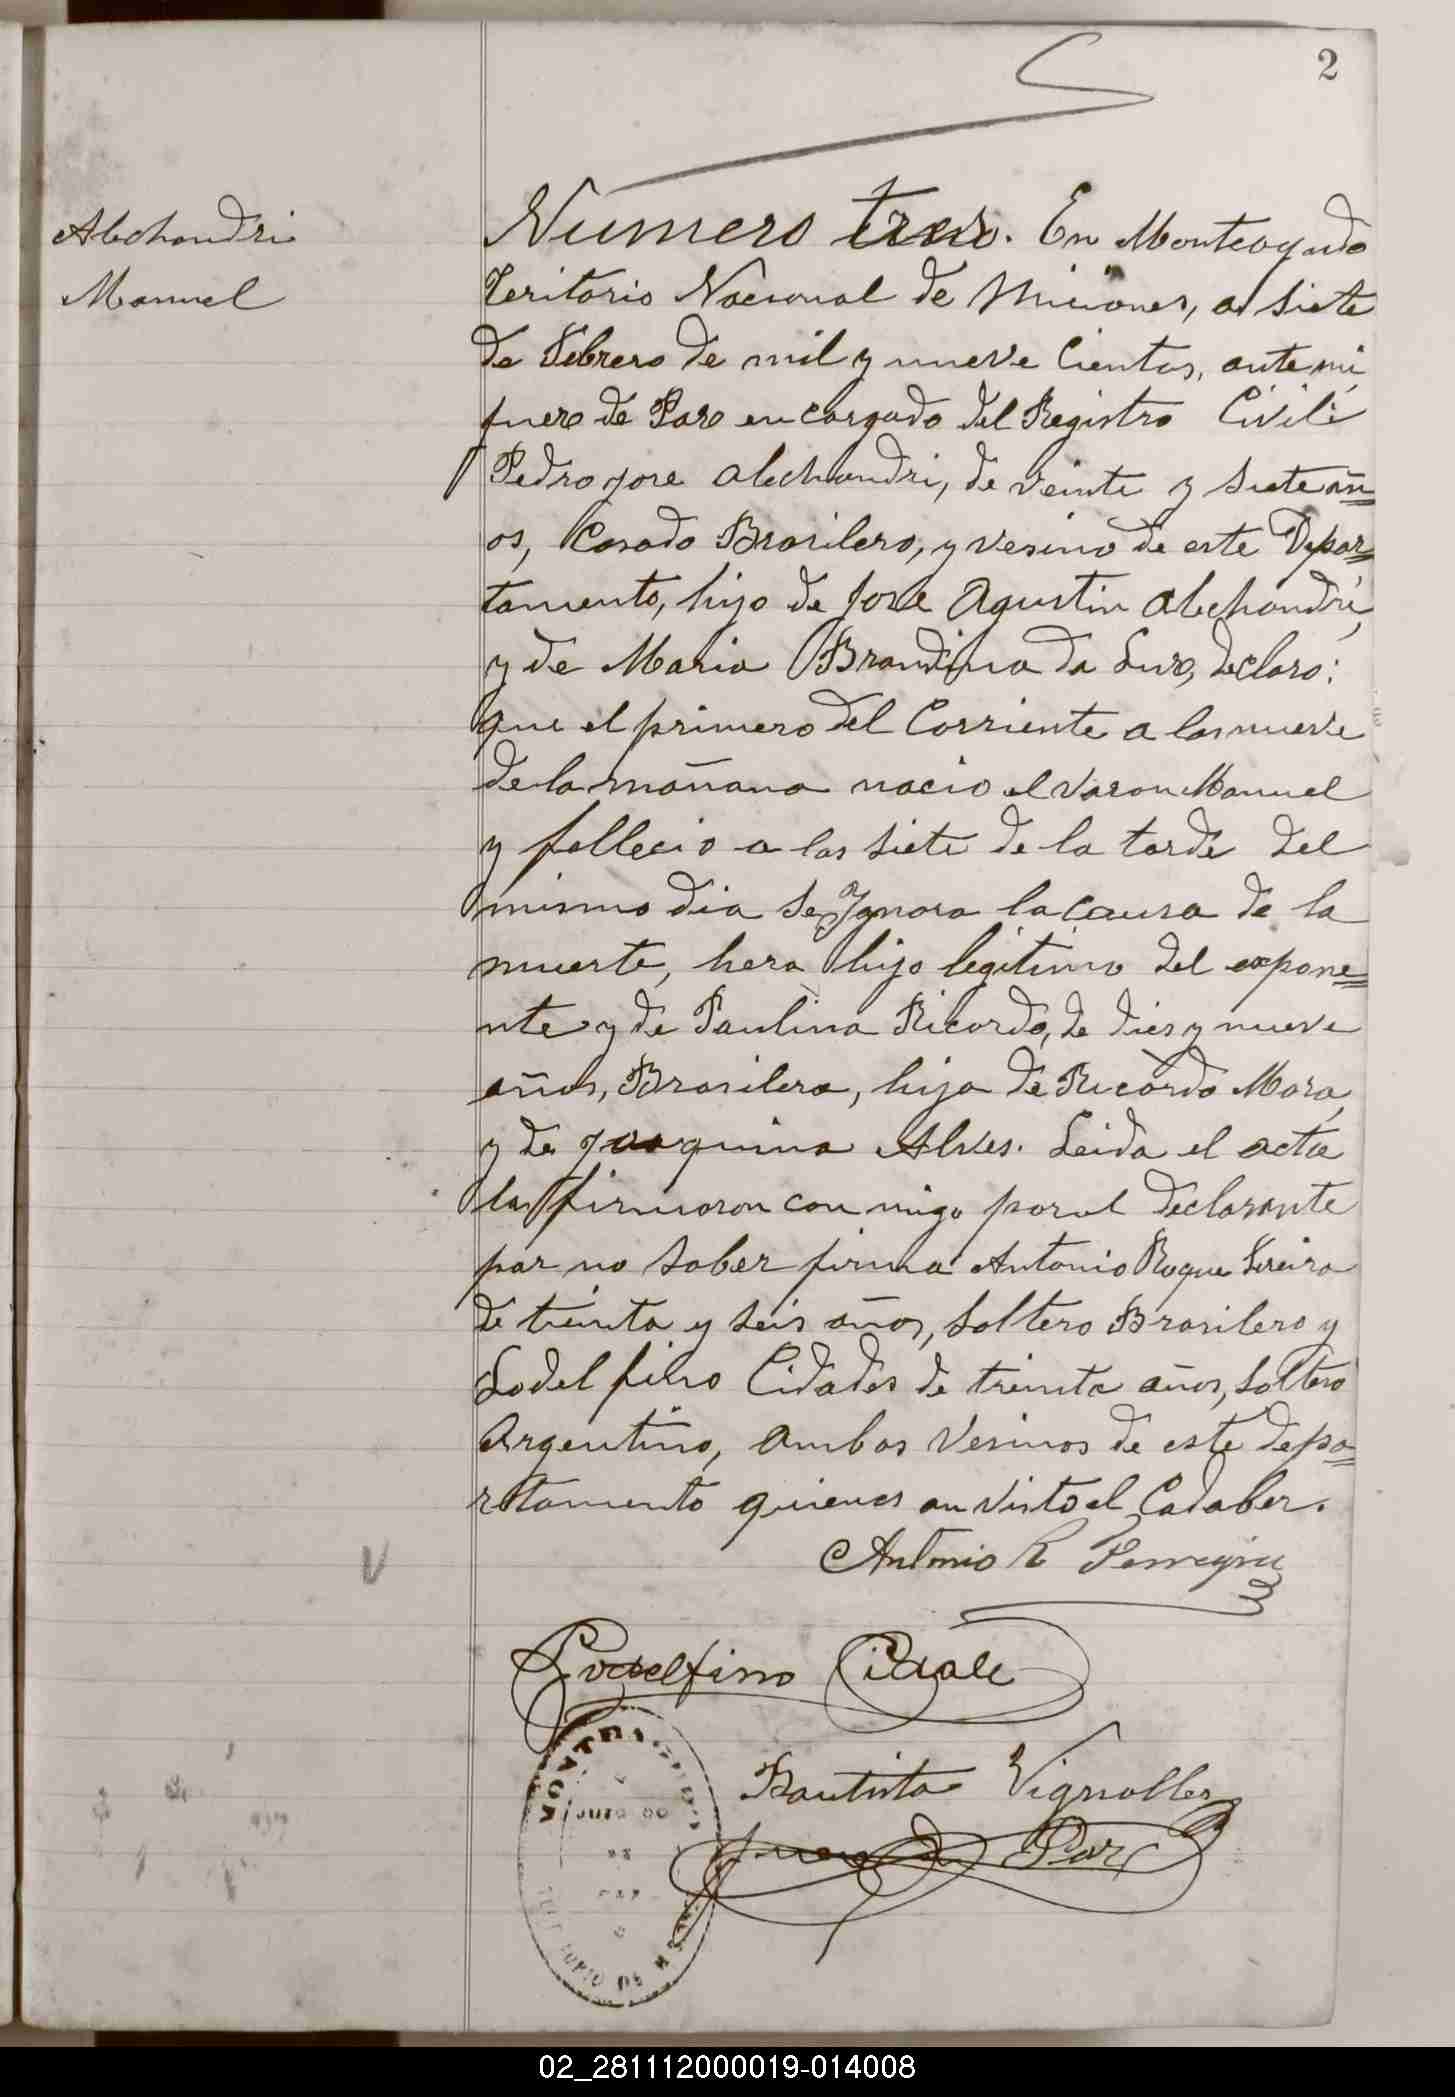 2
Alechandri
Manuel
Numero tres. En Monteagudo
Teritorio Nacional de Miciones, a siete
de Febrero de mil y nueve Cientos, ante mi
Juez de Paz encargado del Registro Civil:
Pedro Jose Alechandri, de veinte y siete añ=
os, Casado Brasilero, y vesino de este Depar=
tamento, hijo de Jose Agustin Alechandri,
y de Maria Brandina da Luz, declaro:
que el primero del Corriente a las nueve
de la mañana nacio el varon Manuel
y fallecio a las siete de la tarde del
mismo dia se Ignora la causa de la
muerte, hera hijo legitimo del expone=
nte y de Paulina Ricardo, de dies y nueve
años, Brasilera, hija de Ricardo Mora,
y de Joaquina Alves. Leida el acta
la firmaron con migo por el declarante
por no saber firma Antonio Roque Fereira
de trenta y seis años, soltero Brasilero y
Lodelfino Cidades de treinta años, soltero
Argentino, ambos Vesinos de este depa=
rtamento quienes an visto el Cadaber.
Antonio R Ferreyra
Lodelfino Cidade
Bautista Vignolles
Juez de Paz
02_281112000019-014008